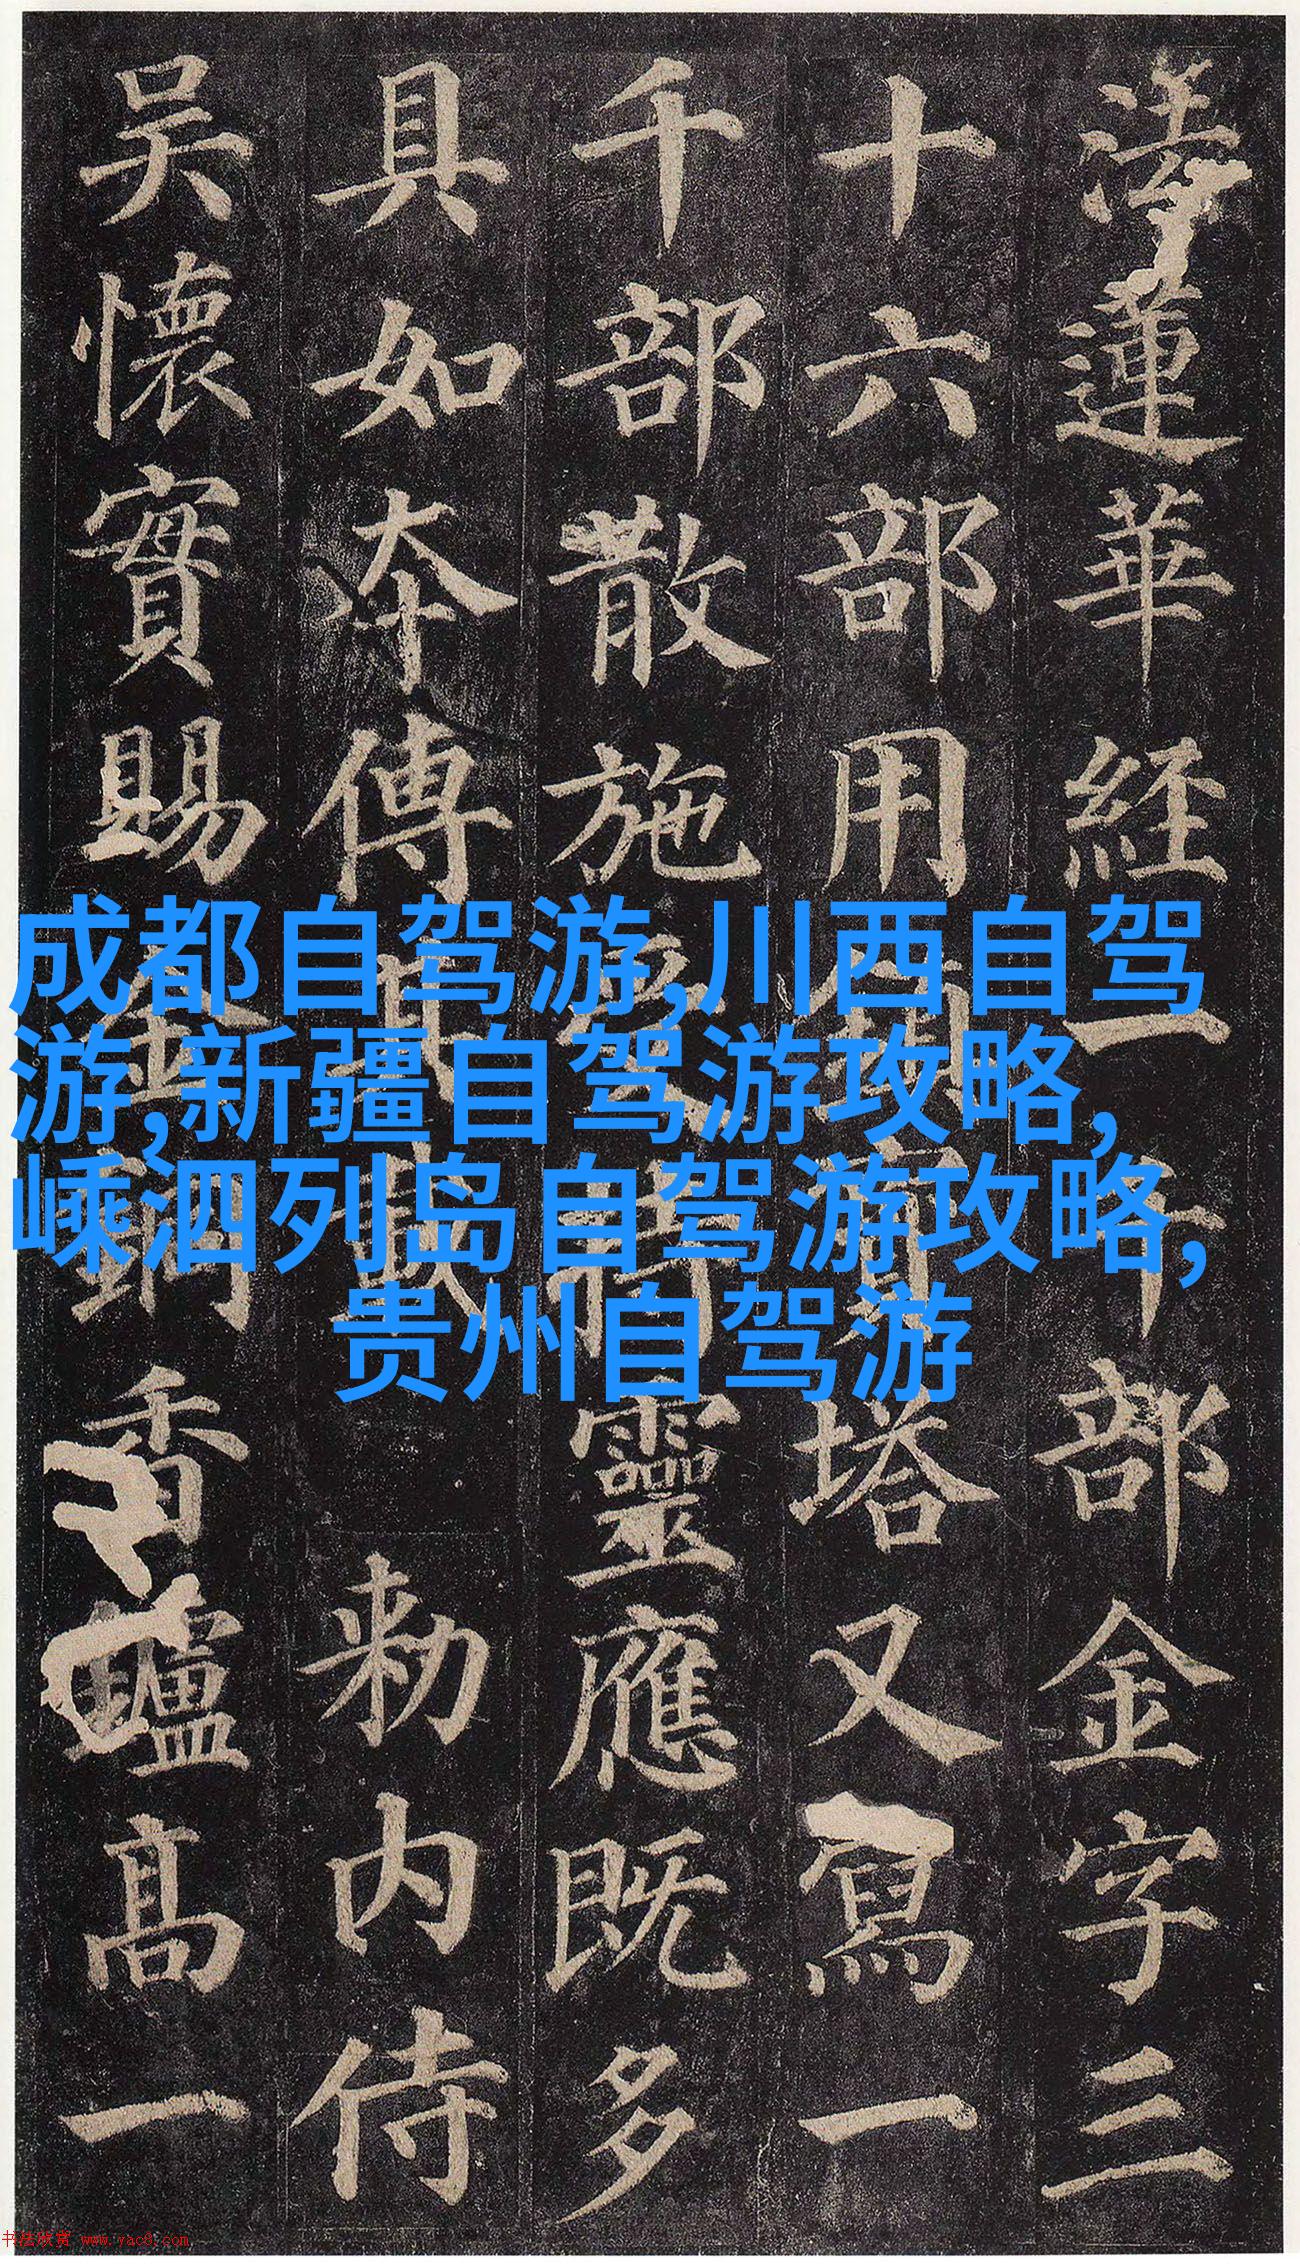 法蓮華經一千部金字三
十六部用鎮寶塔又寫一
千部散施受持靈應既多
具如本傳其載
勅内侍
吳懷實賜金銅香鑪高一
成都自驾游,川西自驾
游,新疆自驾游攻略,
嵊泗列岛自驾游攻略,
贵州自驾游
书法欣赏 www.yac8.com